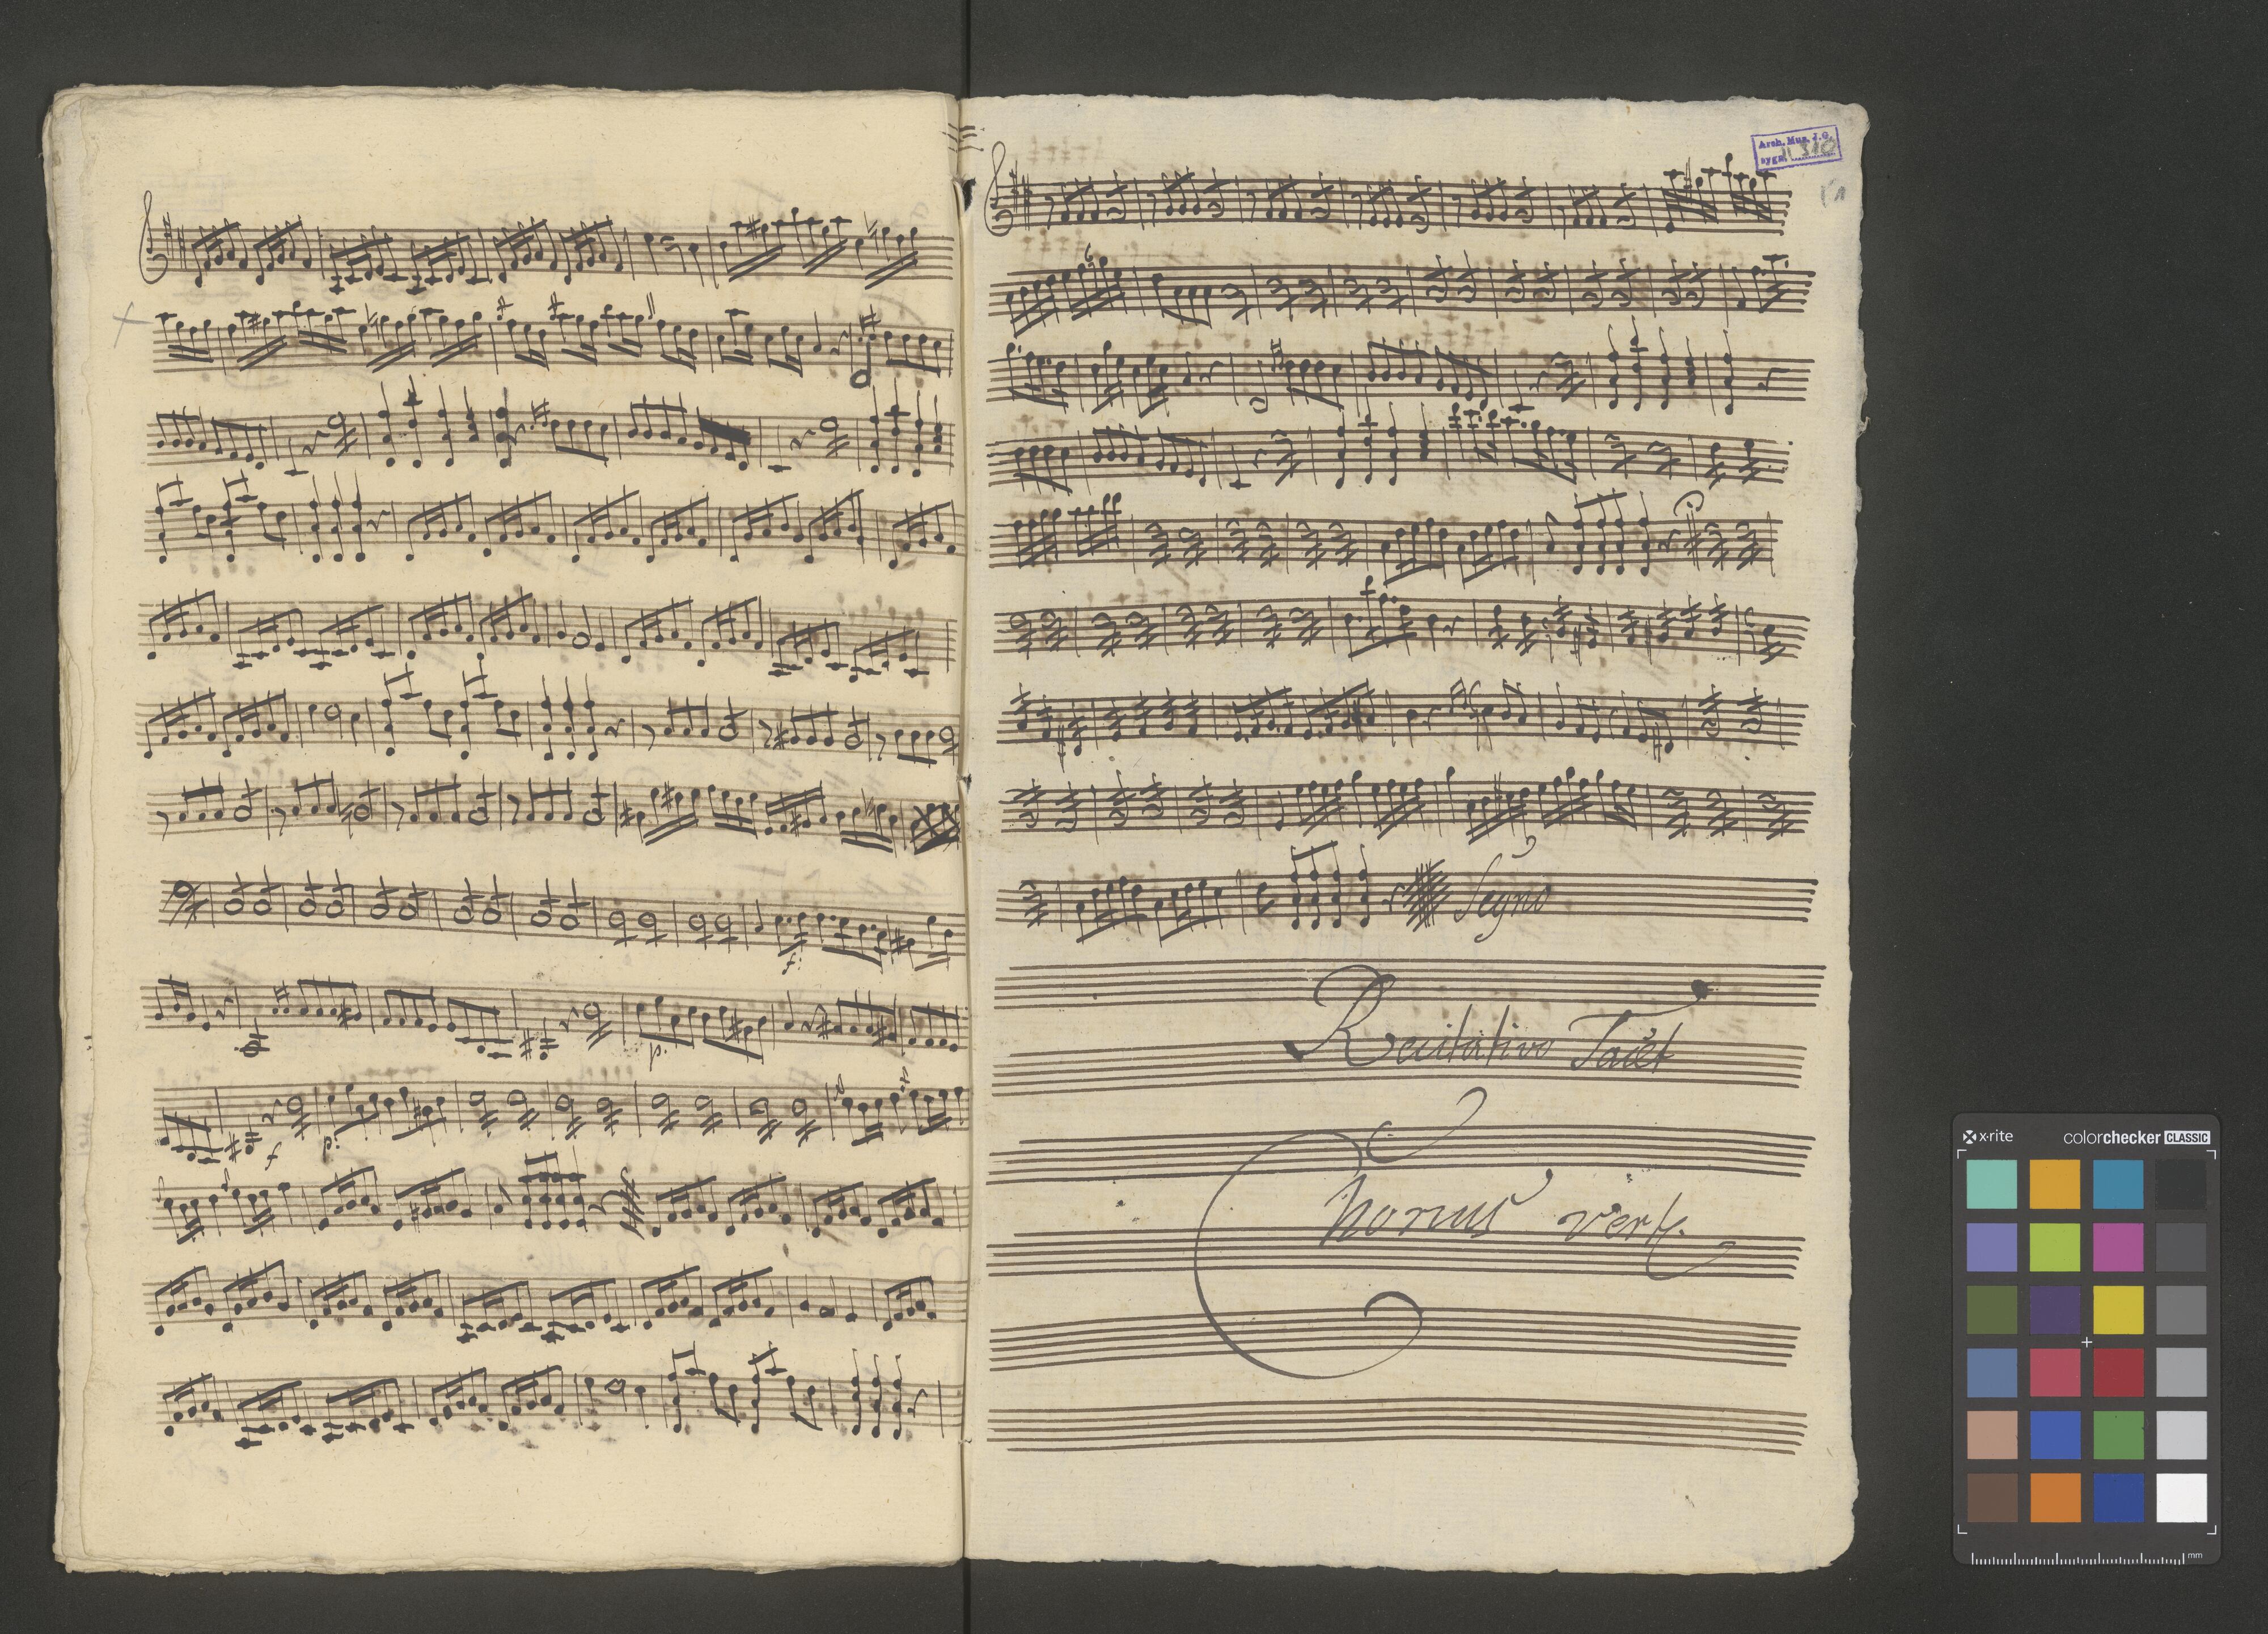 f:
p.
f
p:
Arch. Mus. J.G.
sygn.
6
Segno
Recitativo Tacet
Chorus vert.
x-rite
colorchecker CLASSIC
mm